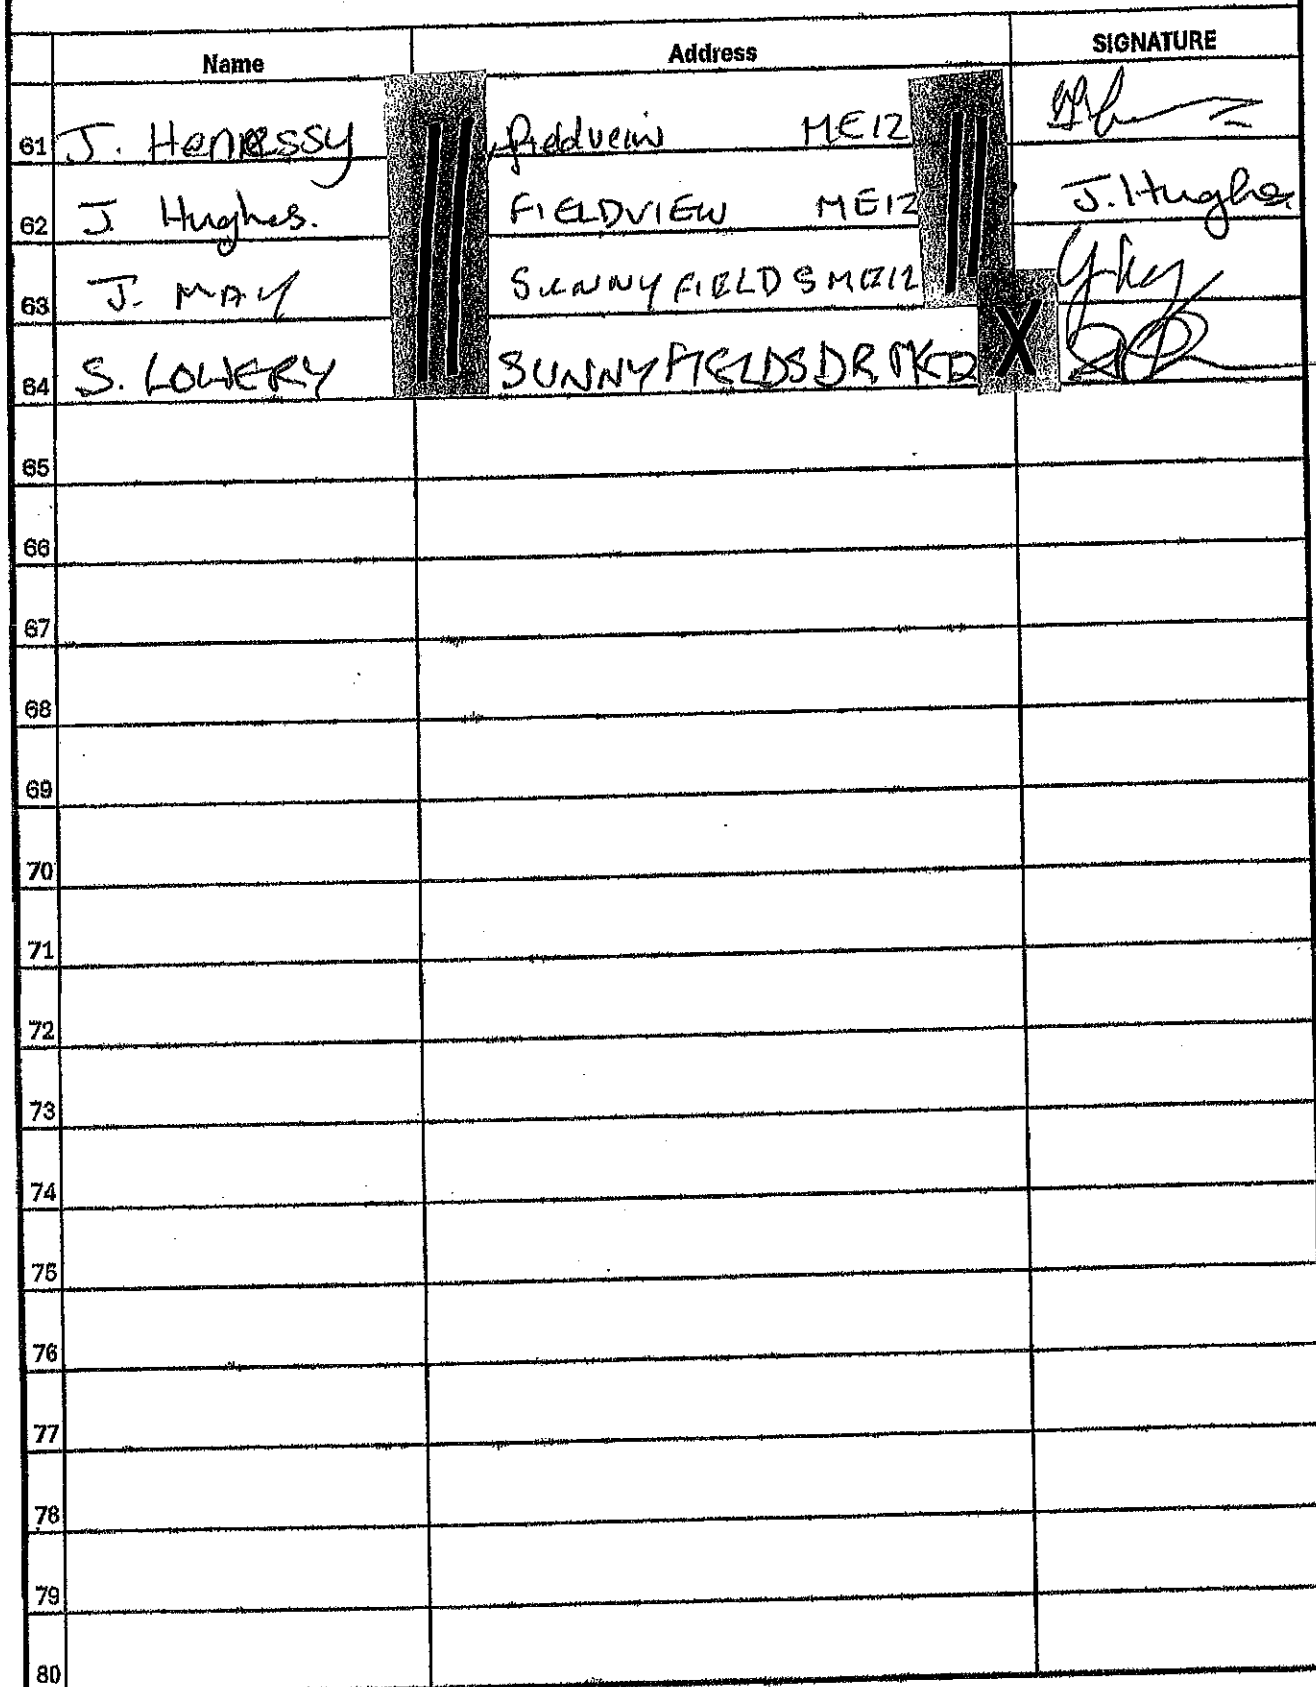 Name Address SIGNATURE
61 J. Hennessy fieldveiw ME12
62 J Hughes. FIELDVIEW ME12 J. Hughes
63 J. MAY SUNNYFIELDS ME12
64 S. LOWERY SUNNYFIELDS DR
65
66
67
68
69
70
71
72
73
74
75
76
77
78
79
80